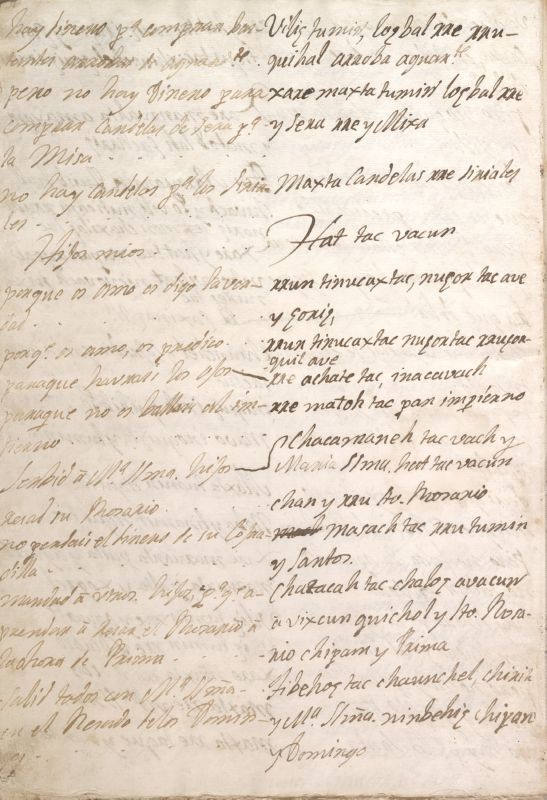 hay dineno pª compnan bas-
tantes annobas de aguante
peno no hay Dineno pana
compnan Candelas de Sena pª
la Misa.
no hay candelas pª los Siria-
les.
Hijos mios
porque os amo os digo la ver-
dad.
porqe os amo, os predico
paraque havrais los ojos
paraque no os balleis al in-
fierno
Servid à Mª Ssma. hijos
Resad su Rosario
no perdais el dineno de su Cofra-
dilla
mandad à vtros. hijos, pª q̃ a-
prendan à Resar el Rosario à
la hora de Prima
salid todos con Mª Ssma.
en el Resado de los Domin-
gos.
Vilis tumin, loqbal rre rru-
quihal arroba aguarte
xare maxta tumin loqbal rre
y sera rre y Mixa
Maxta Candelas rre siriales
Hat tac vacun
rrun tinucaxtac, nuqor tac ave
y qoric,
rrun tinucaxtac nuqortac rruqor-
quil ave
rre achate tac, inacavach
rre matoh tac pan impierno
Chacamaneh tac vach y
Maria Ssma. hat tac vacun
chan y rru sto. Rosario
Masach tac rru tumin
y Santos.
Chatacah tac chaloq avacun
a vixcun quichol y sto. Rosa-
rio chipam y Prima
tibehoq tac chaunchel, chirih
y Mª. Ssma. ninbehiq chipan
y Domingo